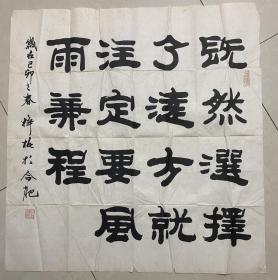 既然選擇
了遠方就
注定要風
雨兼程
歲在己卯之春 梓楨於合肥